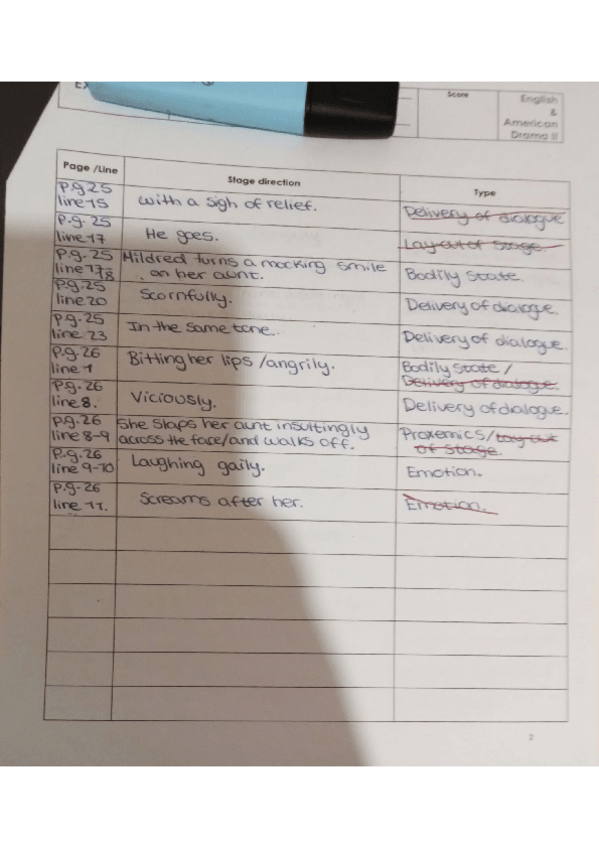 Score
English
&
American
Drama II
Page /Line
Stage direction
Type
P.g 25
line 15
with a sigh of relief.
Delivery of dialogue
P.g. 25
line 17
He goes.
Lay out of stage.
P.g. 25
line 17-18
Mildred turns a mocking smile
on her aunt.
Bodily state.
P.g 25
line 20
Scornfully.
Delivery of dialogue.
P.g. 25
line 23
In the same tone.
Delivery of dialogue.
P.g. 26
line 1
Bitting her lips /angrily.
Bodily state /
Delivery of dialogue.
P.g. 26
line 8.
Viciously.
Delivery of dialogue.
P.g. 26
line 8-9
She slaps her aunt insultingly
across the face/and walks off.
Proxemics/lay out
of stage.
P.g. 26
line 9-10
Laughing gaily.
Emotion.
P.g- 26
line 11.
Screams after her.
Emotion.
2